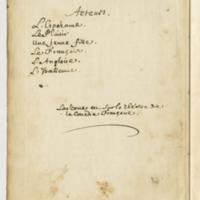 Acteurs.
L'Esperance
Le Plaisir
Une jeune fille
Le François
L'Angloise
L'Italienne
La Scene est sur le théâtre de
la Comédie Françoise